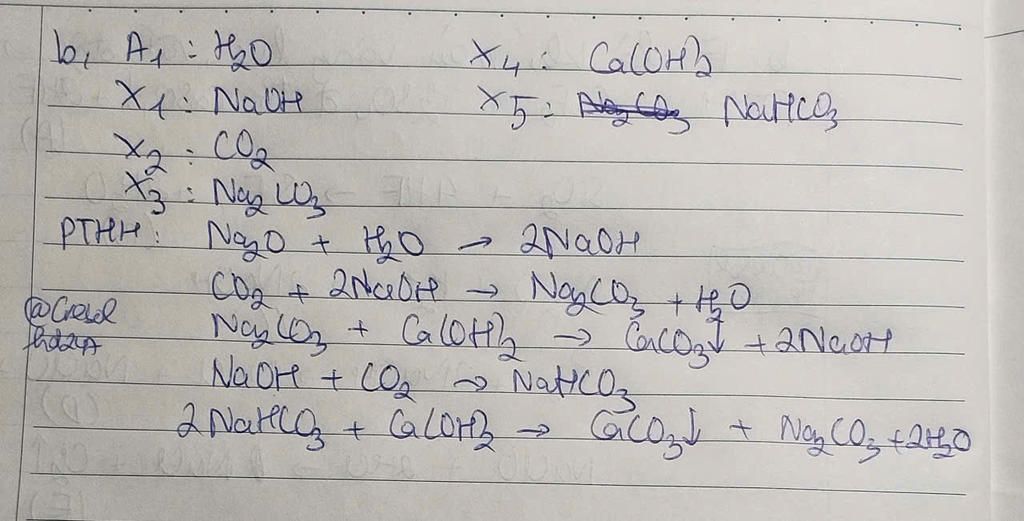 b, A1 : H2O X4 : Ca(OH)2
X1 : NaOH X5 : Na2CO3 NaHCO3
X2 : CO2
X3 : Na2CO3
PTHH: Na2O + H2O → 2NaOH
CO2 + 2NaOH → Na2CO3 + H2O
Na2CO3 + Ca(OH)2 → CaCO3↓ + 2NaOH
NaOH + CO2 → NaHCO3
2NaHCO3 + Ca(OH)2 → CaCO3↓ + Na2CO3 + 2H2O